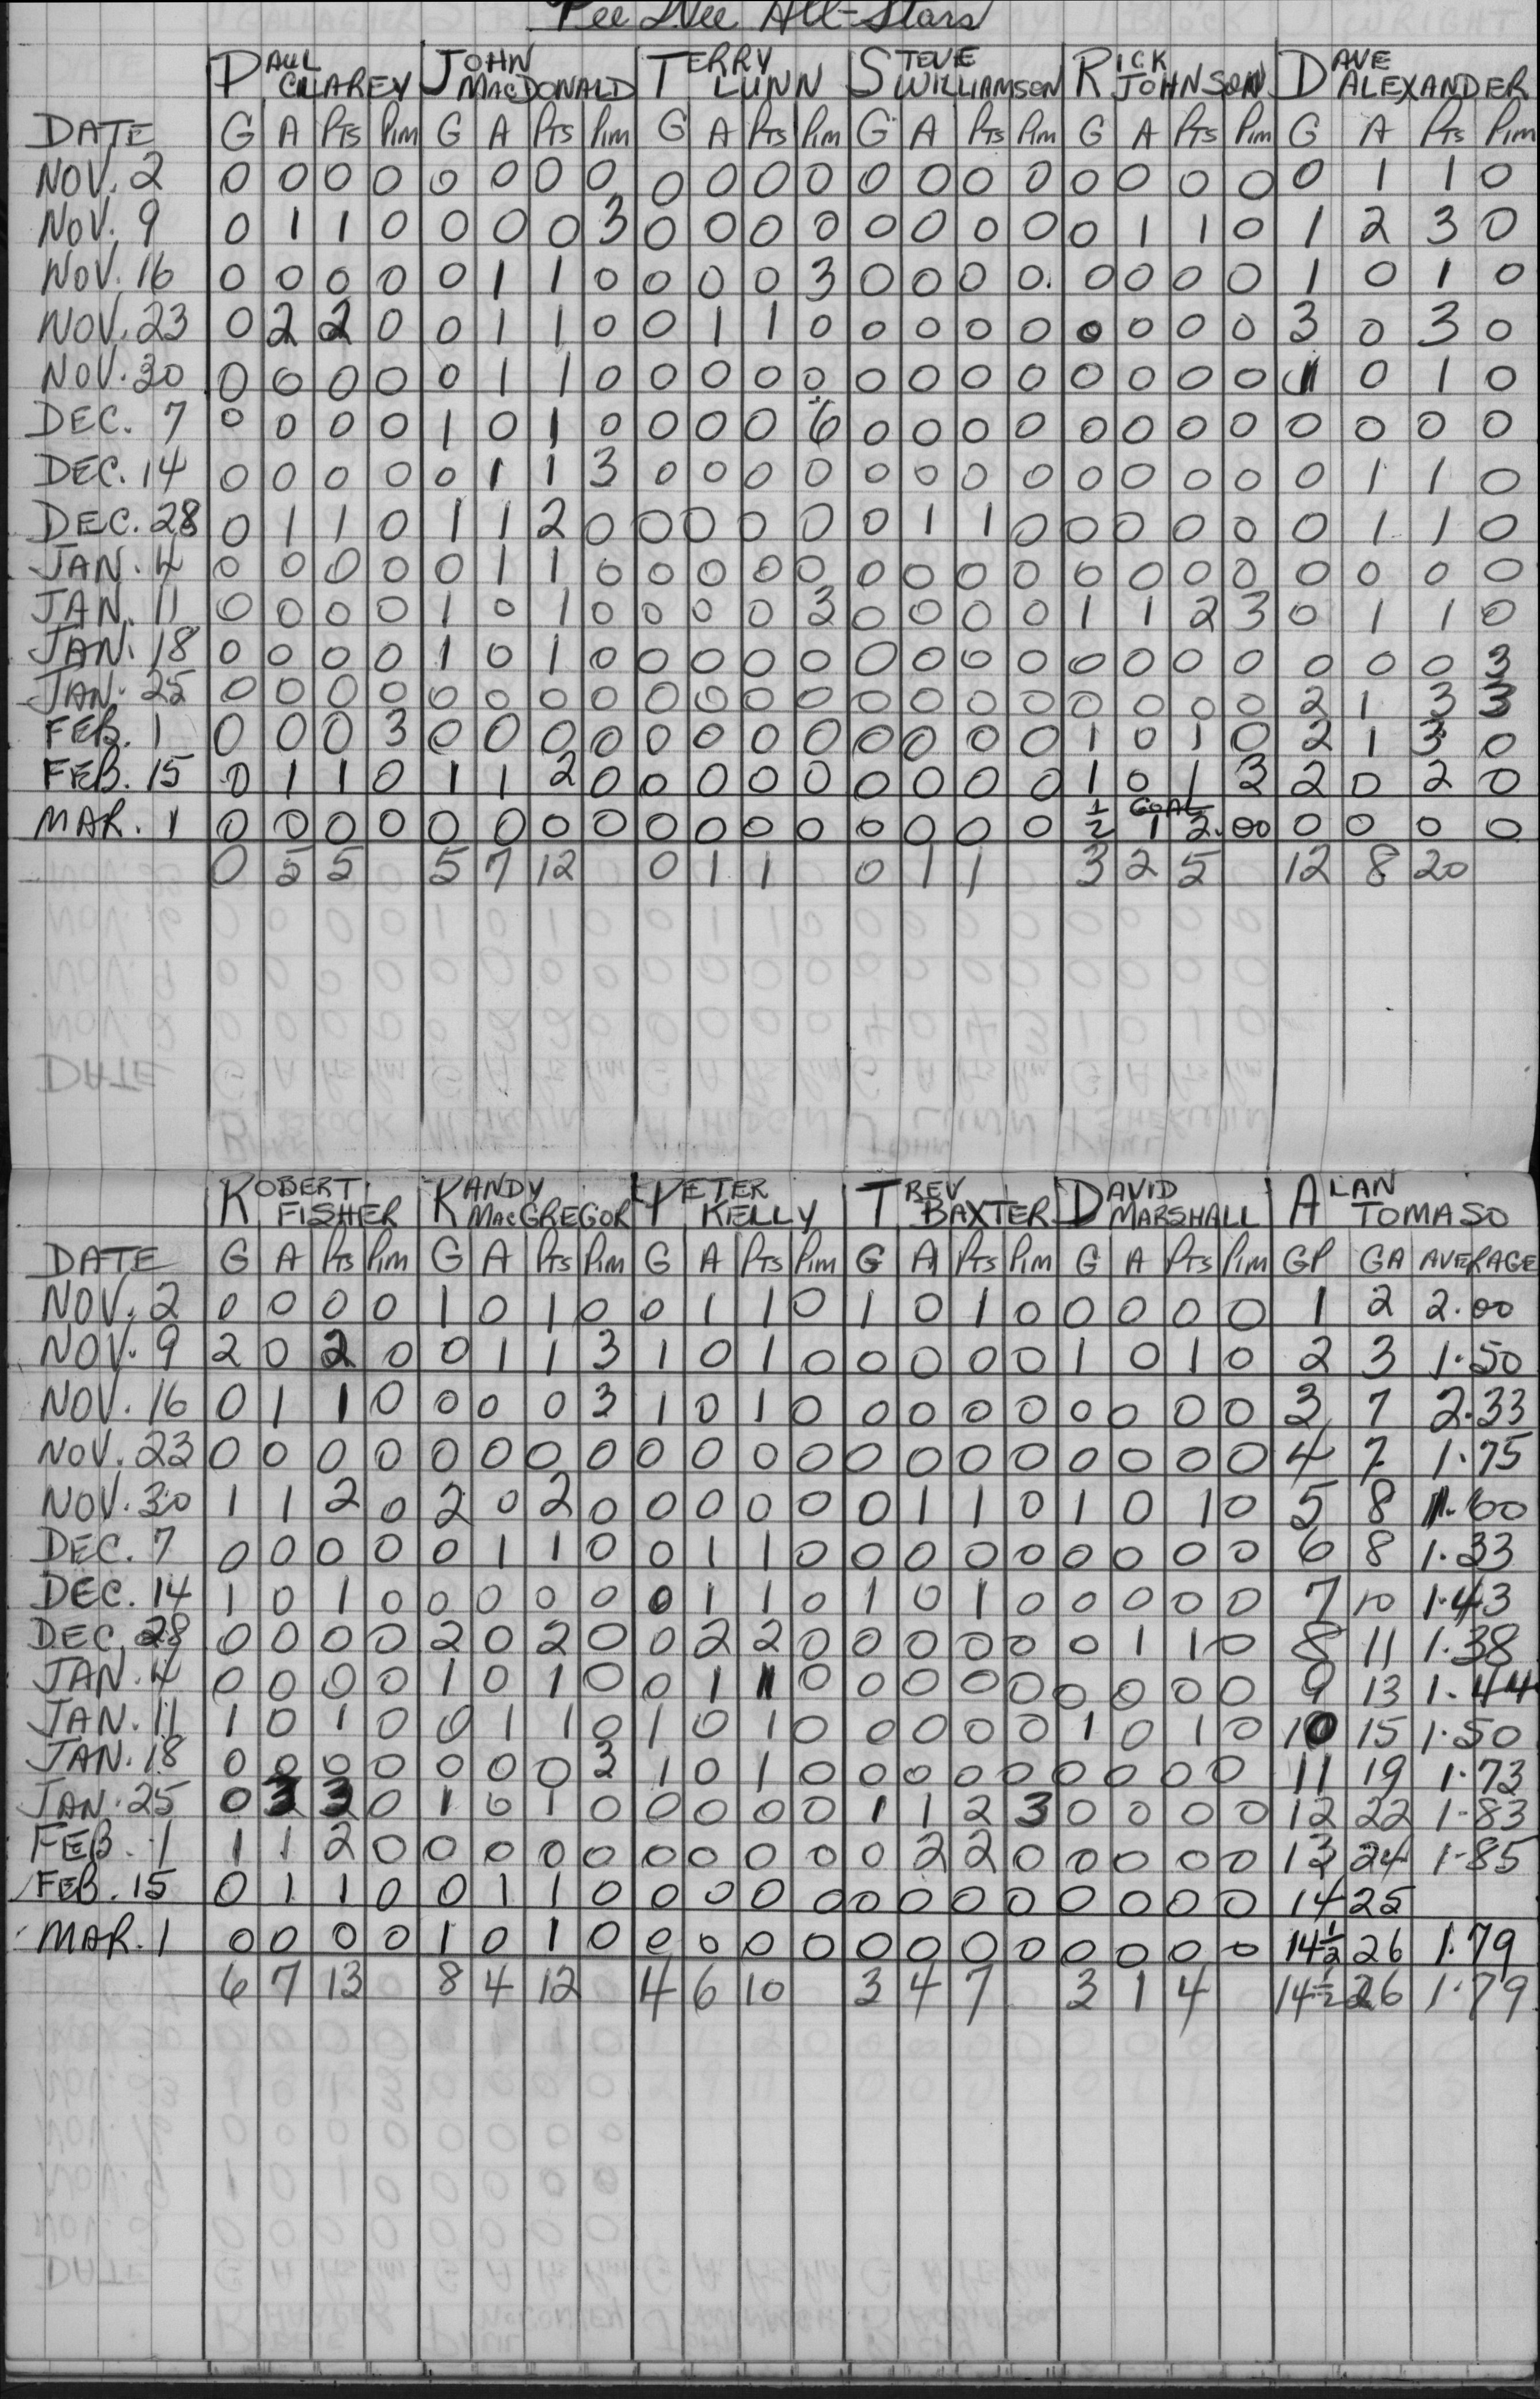 Pee Wee All-Stars
PAUL CLAREY JOHN MACDONALD TERRY LUNN STEVE WILLIAMSON RICK JOHNSON DAVE ALEXANDER
DATE G A Pts Pim G A Pts Pim G A Pts Pim G A Pts Pim G A Pts Pim G A Pts Pim
NOV. 2 0 0 0 0 0 0 0 0 0 0 0 0 0 0 0 0 0 0 0 0 0 1 1 0
NOV. 9 0 1 1 0 0 0 0 3 0 0 0 0 0 0 0 0 0 1 1 0 1 2 3 0
NOV. 16 0 0 0 0 0 1 1 0 0 0 0 3 0 0 0 0. 0 0 0 0 1 0 1 0
NOV. 23 0 2 2 0 0 1 1 0 0 1 1 0 0 0 0 0 0 0 0 0 3 0 3 0
NOV. 30 0 0 0 0 0 1 1 0 0 0 0 0 0 0 0 0 0 0 0 0 1 0 1 0
DEC. 7 0 0 0 0 1 0 1 0 0 0 0 6 0 0 0 0 0 0 0 0 0 0 0 0
DEC. 14 0 0 0 0 0 1 1 3 0 0 0 0 0 0 0 0 0 0 0 0 0 1 1 0
DEC. 28 0 1 1 0 1 1 2 0 0 0 0 0 0 1 1 0 0 0 0 0 0 1 1 0
JAN. 4 0 0 0 0 0 1 1 0 0 0 0 0 0 0 0 0 0 0 0 0 0 0 0 0
JAN. 11 0 0 0 0 1 0 1 0 0 0 0 3 0 0 0 0 1 1 2 3 0 1 1 0
JAN. 18 0 0 0 0 1 0 1 0 0 0 0 0 0 0 0 0 0 0 0 0 0 0 0 3
JAN. 25 0 0 0 0 0 0 0 0 0 0 0 0 0 0 0 0 0 0 0 0 2 1 3 3
FEB. 1 0 0 0 3 0 0 0 0 0 0 0 0 0 0 0 0 1 0 1 0 2 1 3 0
FEB. 15 0 1 1 0 1 1 2 0 0 0 0 0 0 0 0 0 1 0 1 3 2 0 2 0
MAR. 1 0 0 0 0 0 0 0 0 0 0 0 0 0 0 0 0 1/2 GOAL 1 2.00 0 0 0 0
0 5 5 5 7 12 0 1 1 0 1 1 3 2 5 12 8 20
ROBERT FISHER RANDY MACGREGOR PETER KELLY TREV BAXTER DAVID MARSHALL ALAN TOMASO
DATE G A Pts Pim G A Pts Pim G A Pts Pim G A Pts Pim G A Pts Pim GP GA AVERAGE
NOV. 2 0 0 0 0 1 0 1 0 0 1 1 0 1 0 1 0 0 0 0 0 1 2 2.00
NOV. 9 2 0 2 0 0 1 1 3 1 0 1 0 0 0 0 0 1 0 1 0 2 3 1.50
NOV. 16 0 1 1 0 0 0 0 3 1 0 1 0 0 0 0 0 0 0 0 0 3 7 2.33
NOV. 23 0 0 0 0 0 0 0 0 0 0 0 0 0 0 0 0 0 0 0 0 4 7 1.75
NOV. 30 1 1 2 0 2 0 2 0 0 0 0 0 0 1 1 0 1 0 1 0 5 8 1.60
DEC. 7 0 0 0 0 0 1 1 0 0 1 1 0 0 0 0 0 0 0 0 0 6 8 1.33
DEC. 14 1 0 1 0 0 0 0 0 0 1 1 0 1 0 1 0 0 0 0 0 7 10 1.43
DEC. 28 0 0 0 0 2 0 2 0 0 2 2 0 0 0 0 0 0 1 1 0 8 11 1.38
JAN. 4 0 0 0 0 1 0 1 0 0 1 1 0 0 0 0 0 0 0 0 0 9 13 1.44
JAN. 11 1 0 1 0 0 1 1 0 1 0 1 0 0 0 0 0 1 0 1 0 10 15 1.50
JAN. 18 0 0 0 0 0 0 0 3 1 0 1 0 0 0 0 0 0 0 0 0 11 19 1.73
JAN. 25 0 3 3 0 1 0 1 0 0 0 0 0 1 1 2 3 0 0 0 0 12 22 1.83
FEB. 1 1 1 2 0 0 0 0 0 0 0 0 0 0 2 2 0 0 0 0 0 13 24 1.85
FEB. 15 0 1 1 0 0 1 1 0 0 0 0 0 0 0 0 0 0 0 0 0 14 25
MAR. 1 0 0 0 0 1 0 1 0 0 0 0 0 0 0 0 0 0 0 0 0 14 1/2 26 1.79
6 7 13 8 4 12 4 6 10 3 4 7 3 1 4 14 1/2 26 1.79